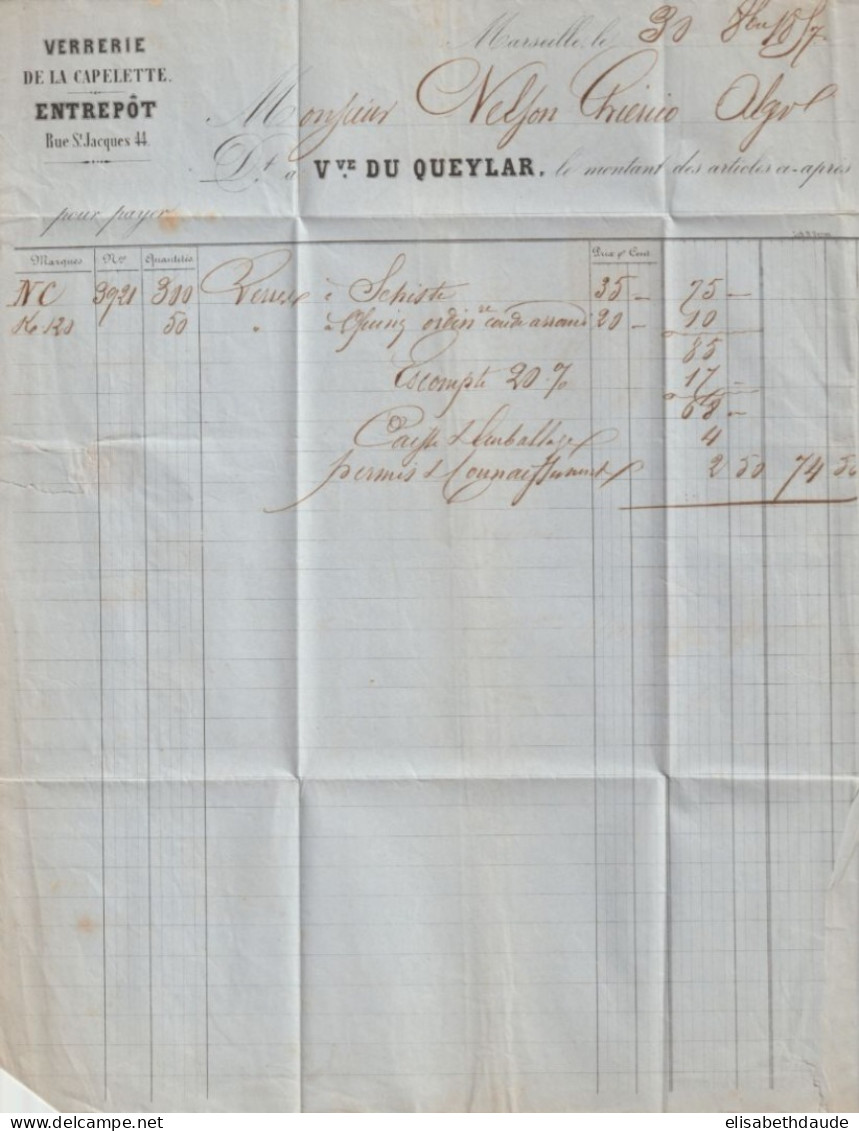 VERRERIE
DE LA CAPELETTE.
ENTREPÔT
Rue St. Jacques 44.
Marseille, le 30
Monsieur Nelson Chierico
Dt. à Vve. DU QUEYLAR, le montant des articles ci-après
pour payer
Marques Nos Quantités Prix p% Cent
NC 3921 300 Verres à Schiste 35 — 75 —
50 " à Quinq ordinre coude arrondi 20 — 10
85
Escompte 20 % 17 —
68 —
Caisse d'Emballage 4
permis & Connaissement 2 50 74 50
elisabethdaude